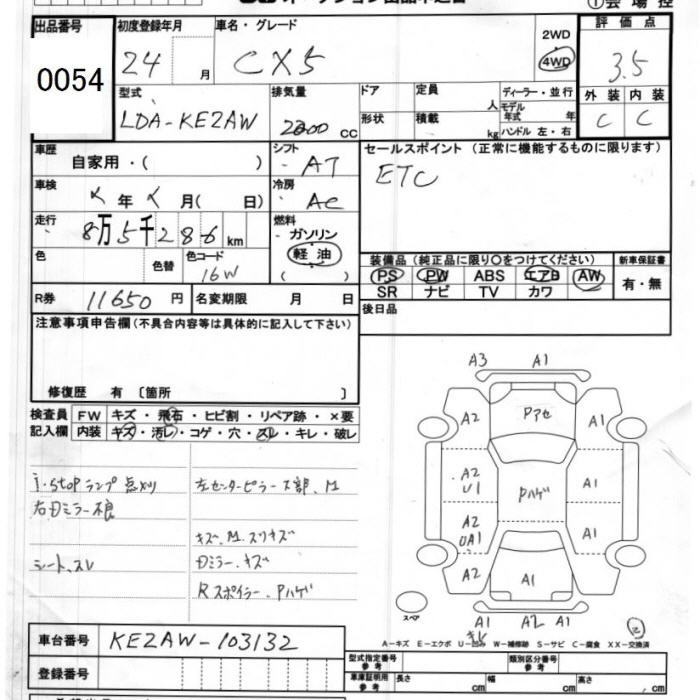 出品番号 0054
初度登録年月 24 月
車名・グレード CX5
2WD
4WD
評価点 3.5
外装 内装
C C
型式 LDA-KE2AW
排気量 2200 cc
ドア
形状
定員 人
積載 kg
ディーラー・並行
モデル年式 年
ハンドル 左・右
車歴 自家用・( )
シフト AT
セールスポイント(正常に機能するものに限ります)
ETC
車検 年 月( 日)
冷房 AC
走行 8万5千286km
燃料 ガソリン
軽油
色 色替 色コード 16W
装備品(純正品に限り○をつけてください)
新車保証書
PS PW ABS エアB AW
SR ナビ TV カワ
有・無
R券 11650円 名変期限 月 日
後日品
注意事項申告欄(不具合内容等は具体的に記入して下さい)
修復歴 有〔箇所 〕
検査員記入欄
FW キズ・飛石・ヒビ割・リペア跡・×要
内装 キズ・汚レ・コゲ・穴・スレ・キレ・破レ
i-stopランプ点灯
右Dミラー不良
シート、スレ
左センターピラー下部、M
キズ、M、スリキズ
Dミラー、キズ
Rスポイラー、Pハゲ
A3 A1
A2 Pアセ A1
A2 U1 Pハゲ A1
A2 UA1 A1
A2 A1 A1
スペア
A1 A2 A1
A-キズ E-エクボ U-凹み W-補修跡 S-サビ C-腐食 XX-交換済
車台番号 KE2AW-103132
登録番号
型式指定番号 参考
類別区分番号 参考
車庫証明用 参考 長さ cm 幅 cm 高さ cm